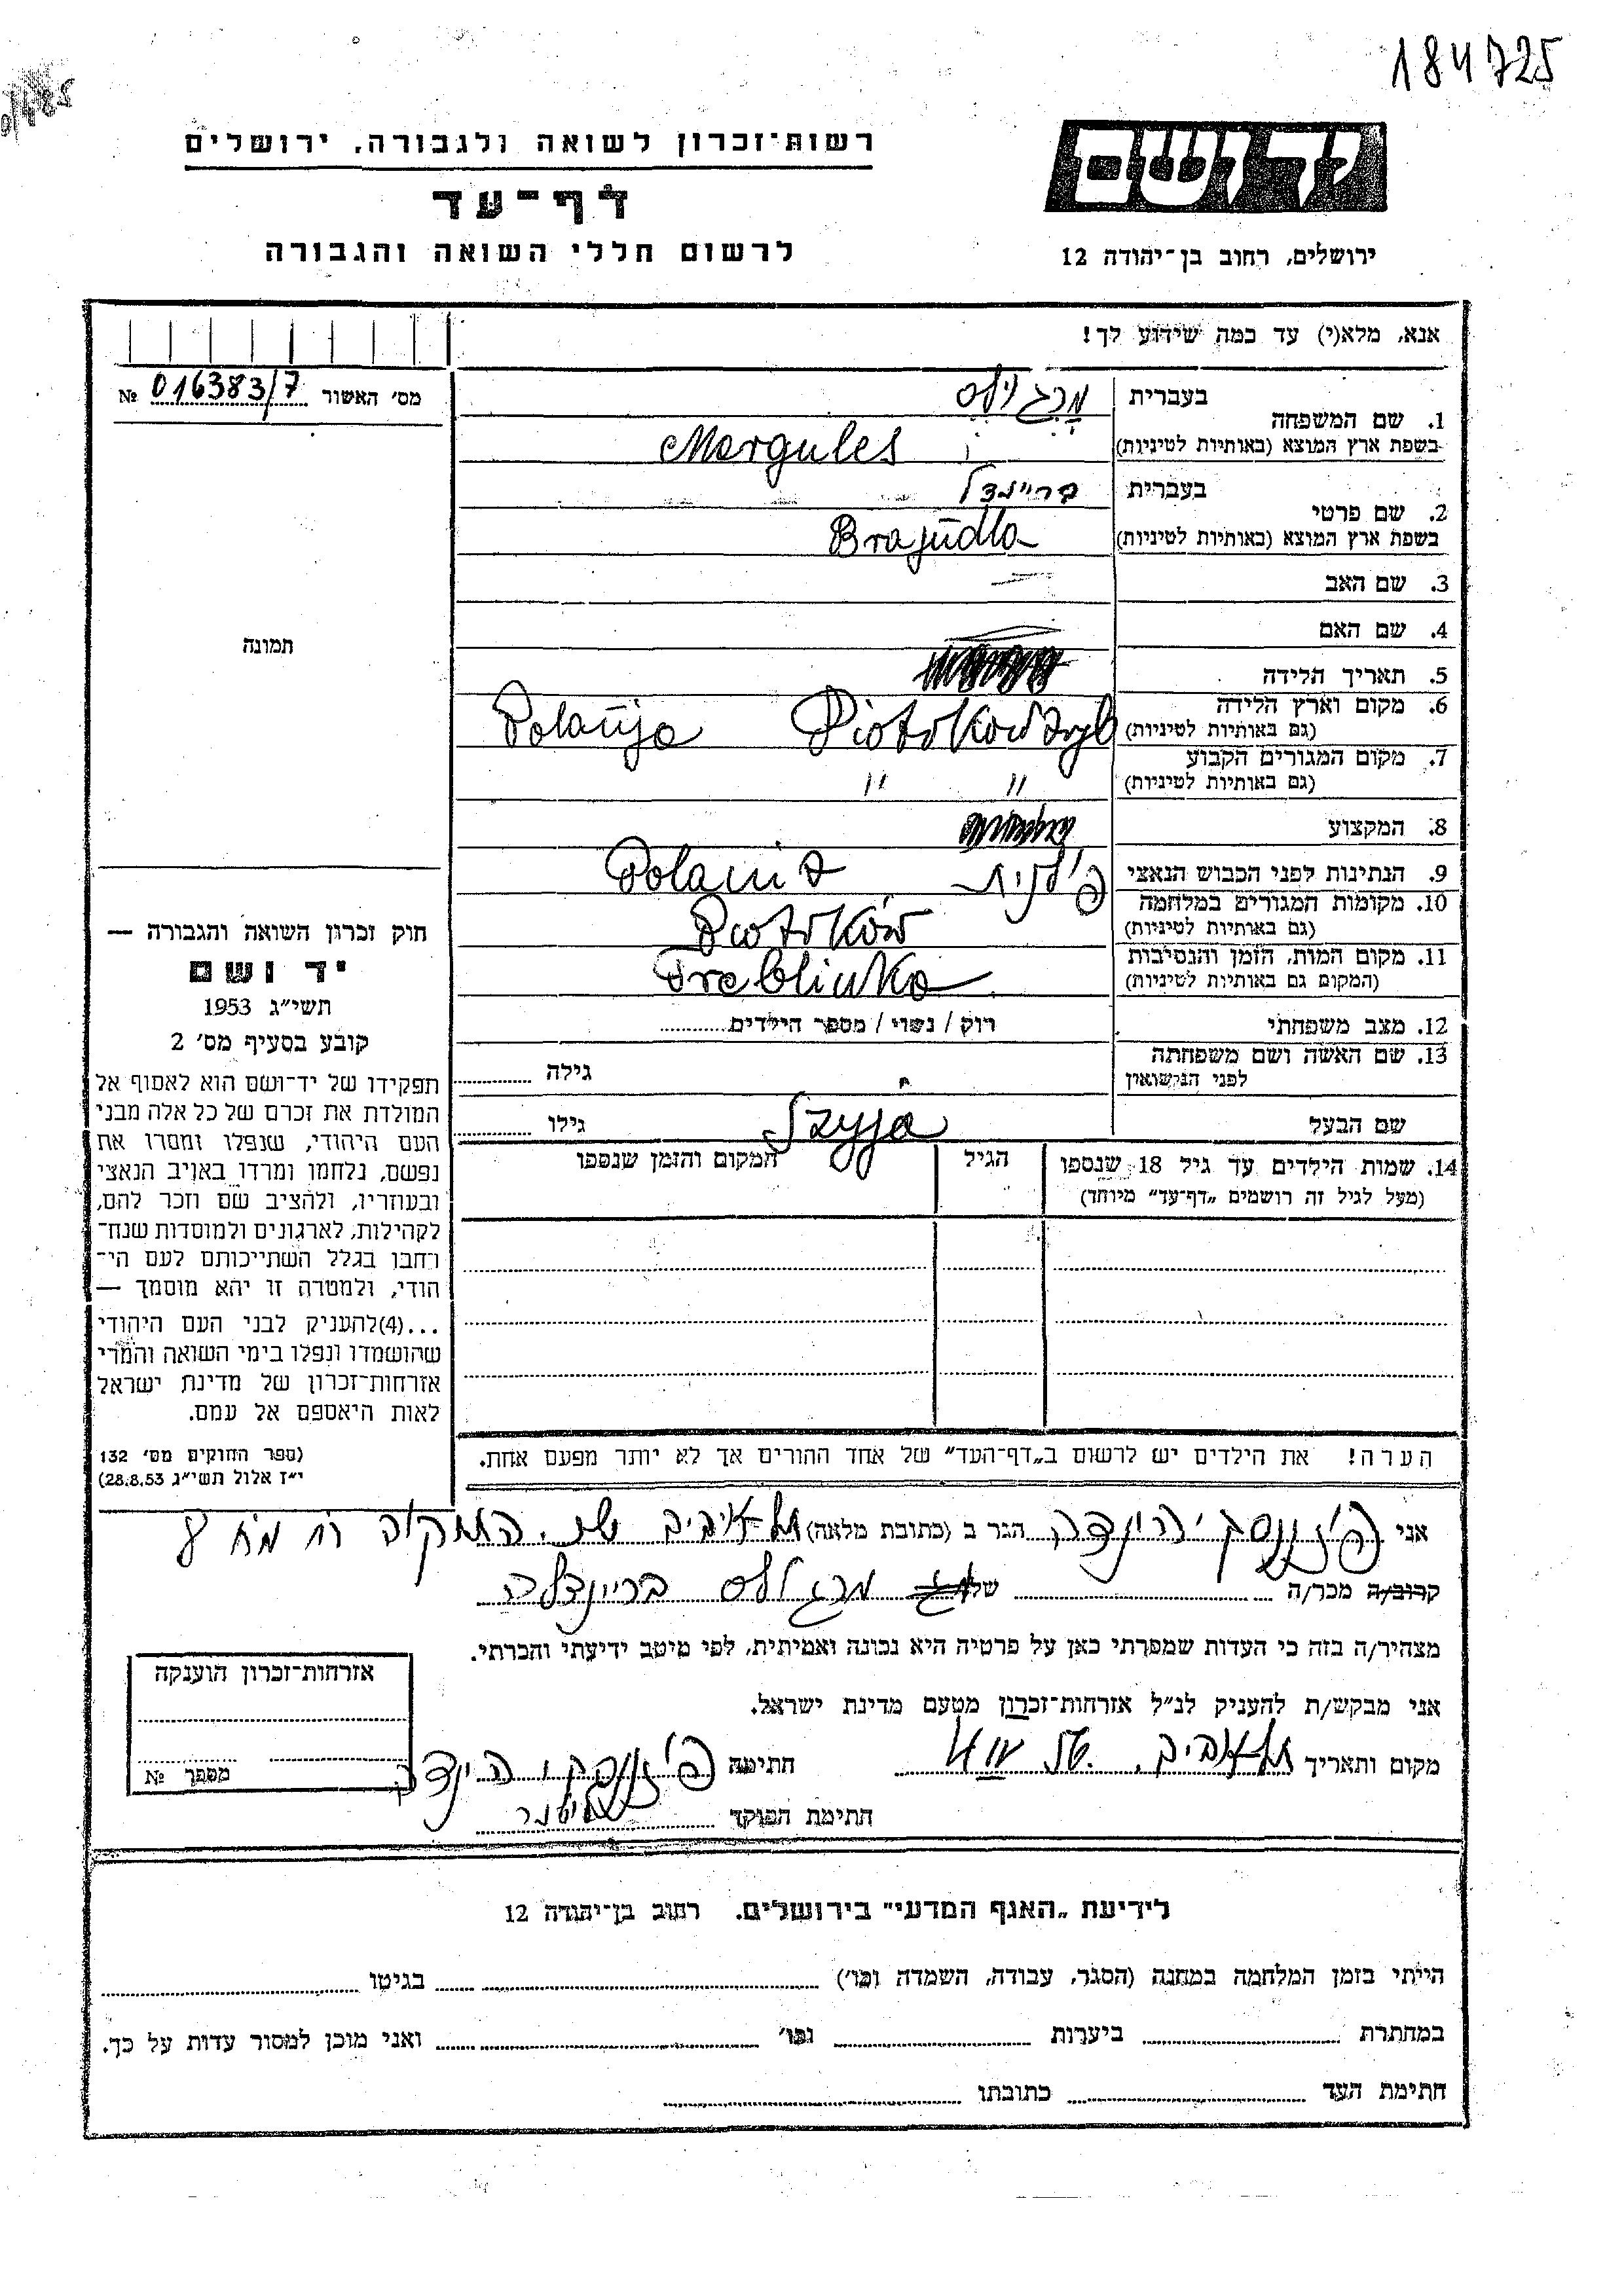 184725
רשות־זכרון לשואה ולגבורה, ירושלים
יד ושם
דף־עד
לרשום חללי השואה והגבורה
ירושלים, רחוב בן־יהודה 12
אנא, מלא(י) עד כמה שידוע לך!
מס' האשור № 016383/7
1. שם המשפחה בעברית מרגולס
בשפת ארץ המוצא (באותיות לטיניות) Margules
2. שם פרטי בעברית בריינדל
בשפת ארץ המוצא (באותיות לטיניות) Brajndla
3. שם האב
4. שם האם
5. תאריך הלידה
6. מקום וארץ הלידה
(גם באותיות לטיניות) Piotrków Tryb Polanija
7. מקום המגורים הקבוע
(גם באותיות לטיניות) " "
8. המקצוע
9. הנתינות לפני הכבוש הנאצי
10. מקומות המגורים במלחמה
(גם באותיות לטיניות) Piotrków
11. מקום המות, הזמן והנסיבות
(המקום גם באותיות לטיניות) Treblinka
12. מצב משפחתי רוק / נשוי / מספר הילדים
13. שם האשה ושם משפחתה
לפני הנישואין גילה
שם הבעל Szyja גילו
14. שמות הילדים עד גיל 18 שנספו הגיל המקום והזמן שנספו
(מעל לגיל זה רושמים „דף־עד" מיוחד)
הערה! את הילדים יש לרשום ב„דף־העד" של אחד ההורים אך לא יותר מפעם אחת.
תמונה
חוק זכרון השואה והגבורה —
יד ושם
תשי"ג 1953
קובע בסעיף מס' 2
תפקידו של יד־ושם הוא לאסוף אל
המולדת את זכרם של כל אלה מבני
העם היהודי, שנפלו ומסרו את
נפשם, נלחמו ומרדו באויב הנאצי
ובעוזריו, ולהציב שם וזכר להם,
לקהילות, לארגונים ולמוסדות שנח־
רחבו בגלל השתייכותם לעם הי־
הודי, ולמטרה זו יהא מוסמך —
...(4)להעניק לבני העם היהודי
שהושמדו ונפלו בימי השואה והמרי
אזרחות־זכרון של מדינת ישראל
לאות היאספם אל עמם.
(ספר החוקים מס' 132
י"ז אלול תשי"ג 28.8.53)
אני הינדה הגר ב (כתובת מלאה) תל אביב
קרוב/ה מכר/ה של מרגולס בריינדלה
מצהיר/ה בזה כי העדות שמסרתי כאן על פרטיה היא נכונה ואמיתית, לפי מיטב ידיעתי והכרתי.
אני מבקש/ת להעניק לנ"ל אזרחות־זכרון מטעם מדינת ישראל.
מקום ותאריך תל אביב חתימה הינדה
חתימת הפוקד
אזרחות־זכרון הוענקה
מספר №
לידיעת „האגף המדעי" בירושלים. רחוב בן־יהודה 12
הייתי בזמן המלחמה במחנה (הסגר, עבודה, השמדה וכו') בגיטו
במחתרת ביערות וכו' ואני מוכן למסור עדות על כך.
חתימת העד כתובתו